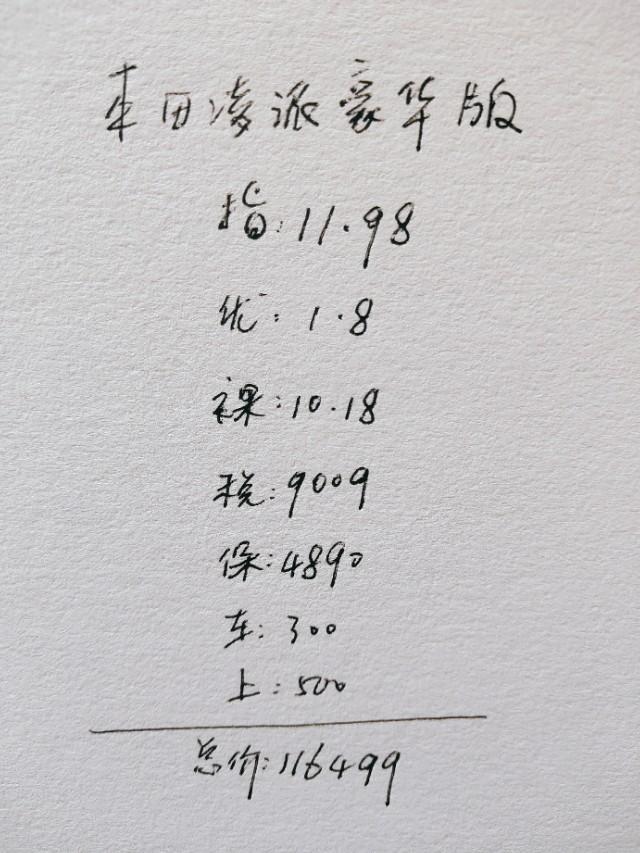 本田凌派豪华版
指:11.98
优:1.8
裸:10.18
税:9009
保:4890
车:300
上:500
总价:116499